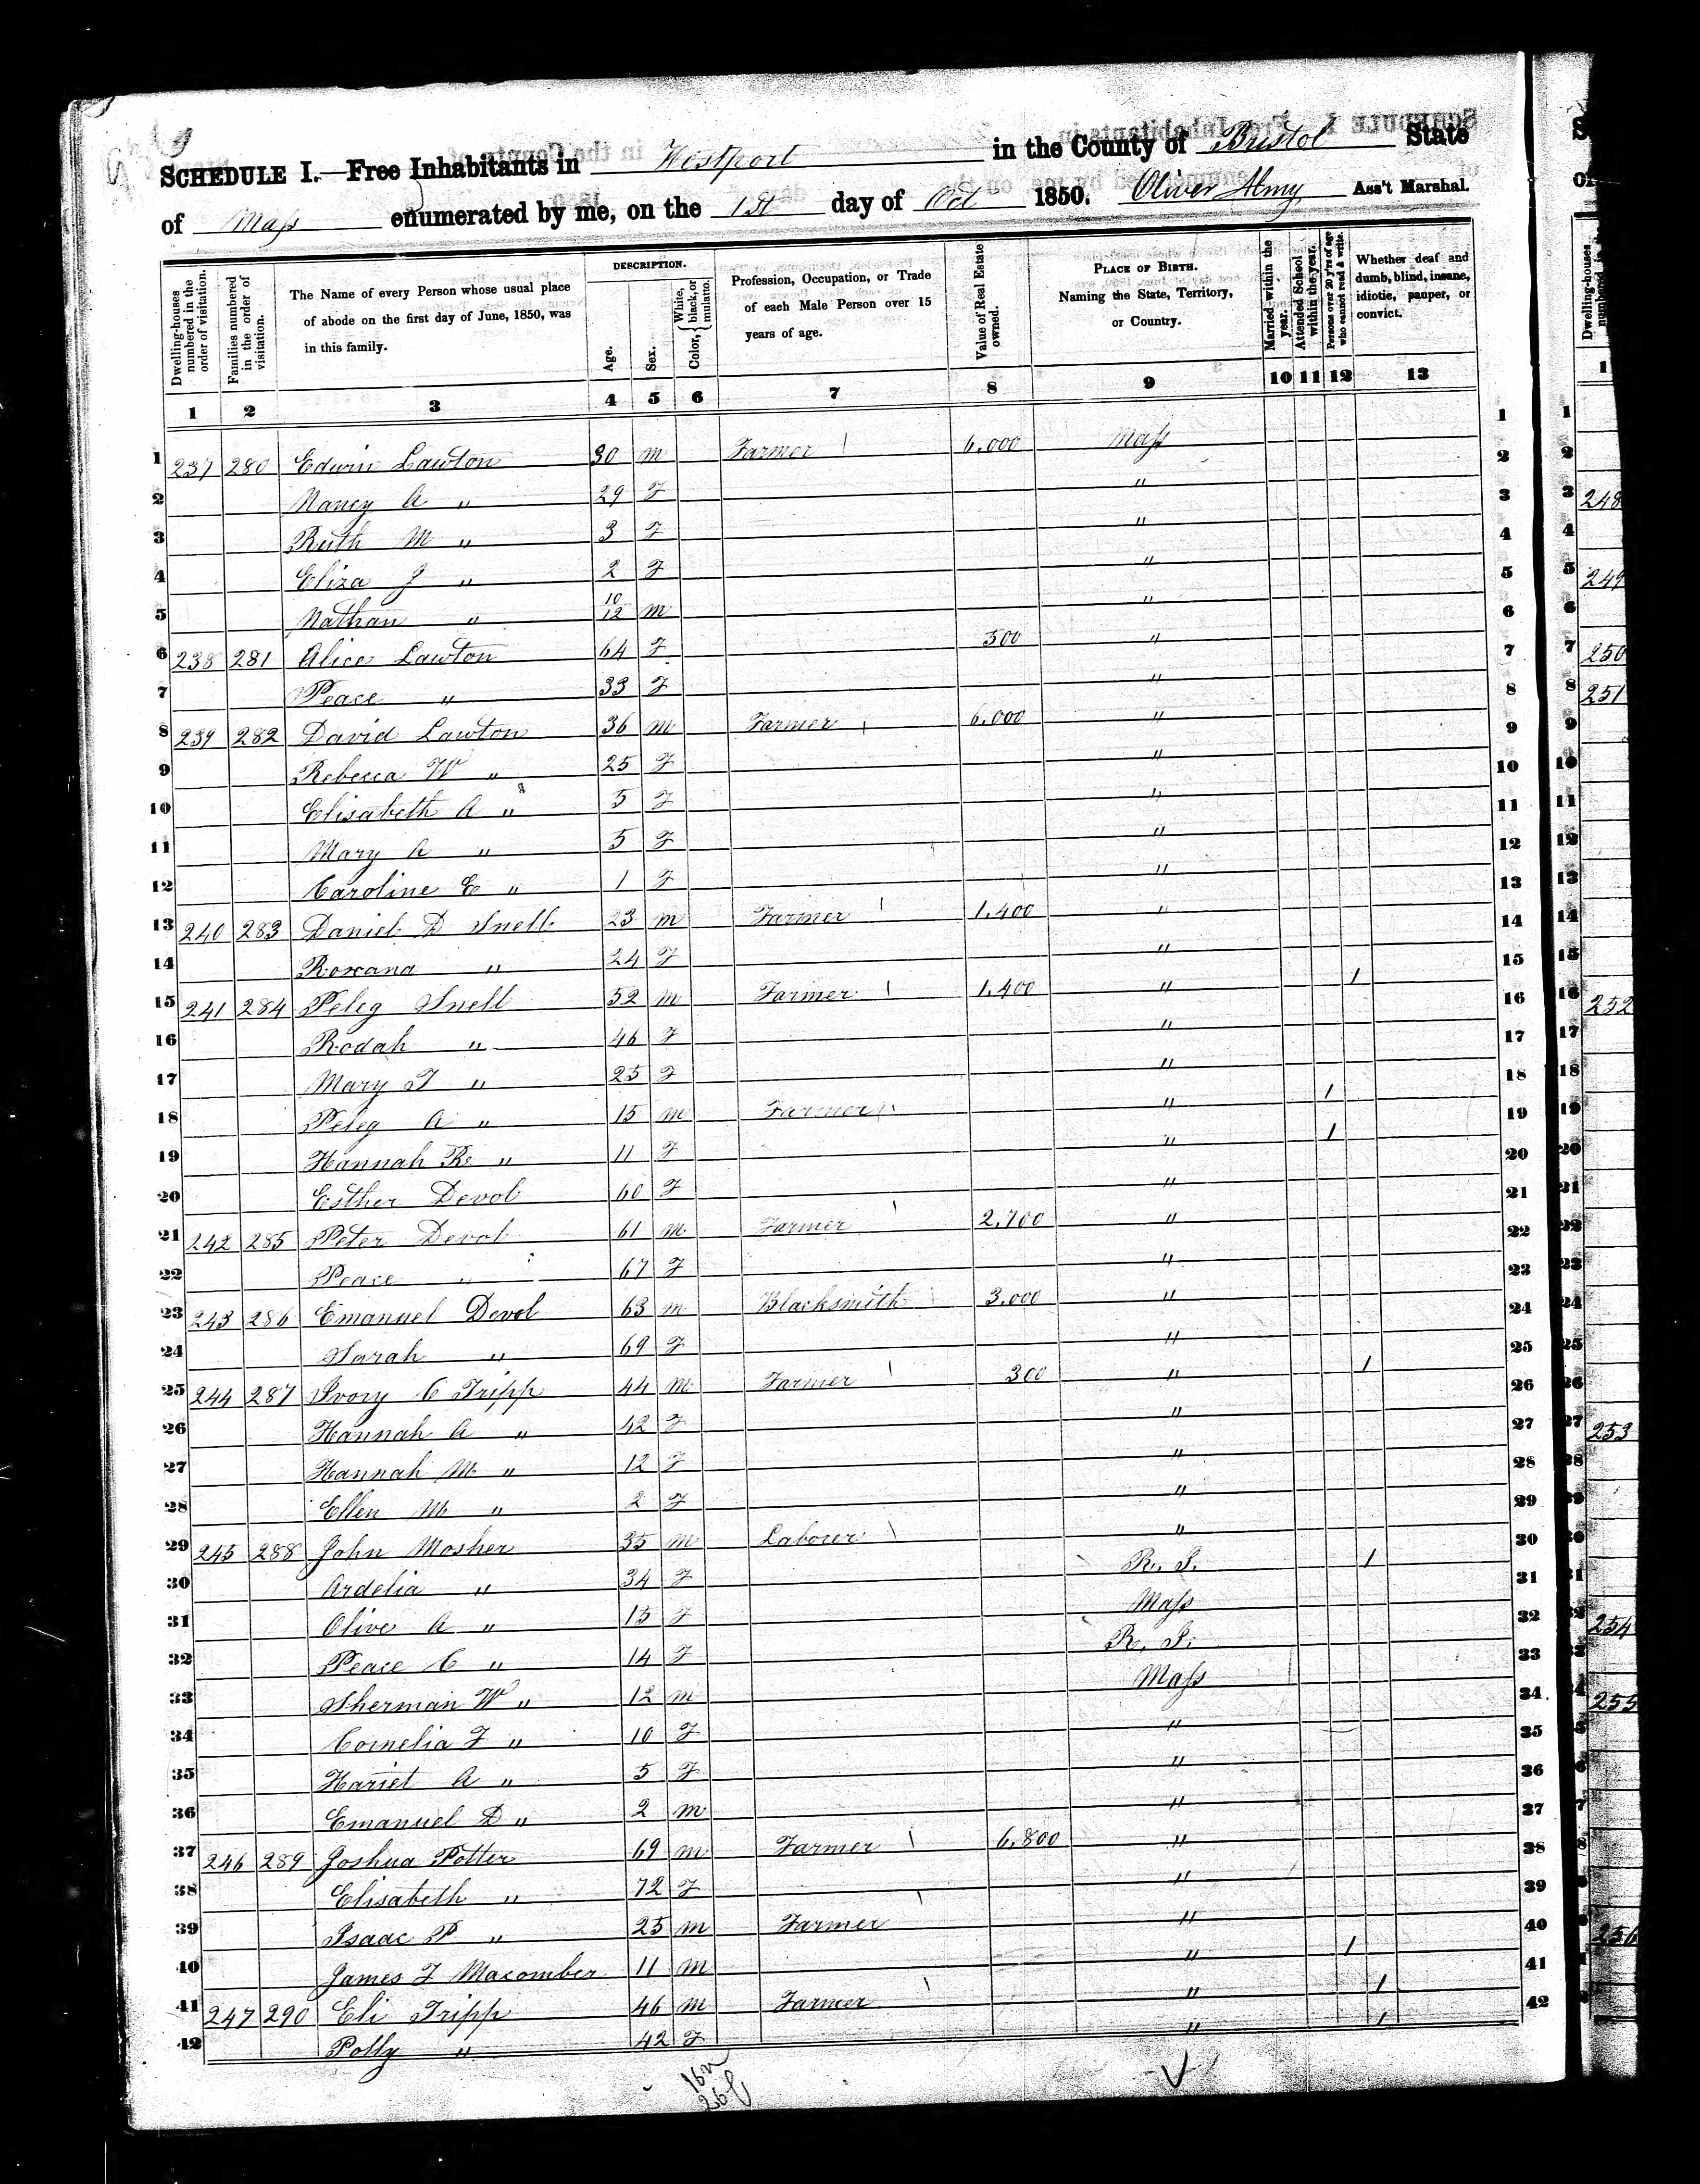 SCHEDULE I.—Free Inhabitants in Westport in the County of Bristol State
of Mass enumerated by me, on the 1st day of Oct 1850. Oliver Almy Ass't Marshal.
Dwelling-houses numbered in the order of visitation.
Families numbered in the order of visitation.
The Name of every Person whose usual place of abode on the first day of June, 1850, was in this family.
DESCRIPTION.
Age.
Sex.
Color, { White, black, or mulatto.
Profession, Occupation, or Trade of each Male Person over 15 years of age.
Value of Real Estate owned.
PLACE OF BIRTH. Naming the State, Territory, or Country.
Married within the year.
Attended School within the year.
Persons over 20 y'rs of age who cannot read & write.
Whether deaf and dumb, blind, insane, idiotic, pauper, or convict.
1 2 3 4 5 6 7 8 9 10 11 12 13
1 237 280 Edwin Lawton 30 m Farmer 6,000 Mass 1
2 Nancy A " 29 F " 2
3 Ruth M " 3 F " 3
4 Eliza J " 2 F " 4
5 Nathan " 10/12 m " 5
6 238 281 Alice Lawton 64 F 500 " 6
7 Peace " 33 F " 7
8 239 282 David Lawton 36 m Farmer 6,000 " 8
9 Rebecca W " 25 F " 9
10 Elisabeth A " 5 F " 10
11 Mary A " 5 F " 11
12 Caroline E " 1 F " 12
13 240 283 Daniel D Snell 23 m Farmer 1,400 " 13
14 Roxana " 24 F " 14
15 241 284 Peleg Snell 52 m Farmer 1,400 " 1 15
16 Rodah " 46 F " 16
17 Mary T " 25 F " 17
18 Peleg A " 15 m Farmer " 1 18
19 Hannah R " 11 F " 1 19
20 Esther Devol 60 F " 20
21 242 285 Peter Devol 61 m Farmer 2,700 " 21
22 Peace " 67 F " 22
23 243 286 Emanuel Devol 63 m Blacksmith 3,000 " 23
24 Sarah " 69 F " 24
25 244 287 Ivory C Tripp 44 m Farmer 300 " 1 25
26 Hannah A " 42 F " 26
27 Hannah M " 12 F " 27
28 Ellen M " 2 F " 28
29 245 288 John Mosher 35 m Laborer " 29
30 Ardelia " 34 F R. I. 1 30
31 Olive A " 15 F Mass 31
32 Peace C " 14 F R. I. 32
33 Sherman W " 12 m Mass 33
34 Cornelia F " 10 F " 34
35 Hariet A " 5 F " 35
36 Emanuel D " 2 m " 36
37 246 289 Joshua Potter 69 m Farmer 6,800 " 37
38 Elisabeth " 72 F " 38
39 Isaac P " 25 m Farmer " 39
40 James F Macomber 11 m " 1 40
41 247 290 Eli Tripp 46 m Farmer " 1 41
42 Polly " 42 F " 1 42
16m
26f
1
248
249
250
251
252
253
254
255
256